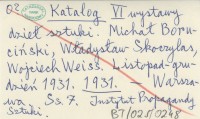 Katalog VI wystawy
dzieł sztuki. Michał Boru-
ciński, Władysław Skoczylas,
Wojciech Weiss. Listopad-gru-
dzień 1931. 1931. Warsza-
wa Ss. 7. Instytut Propagandy
Sztuki.
B7/025/0248